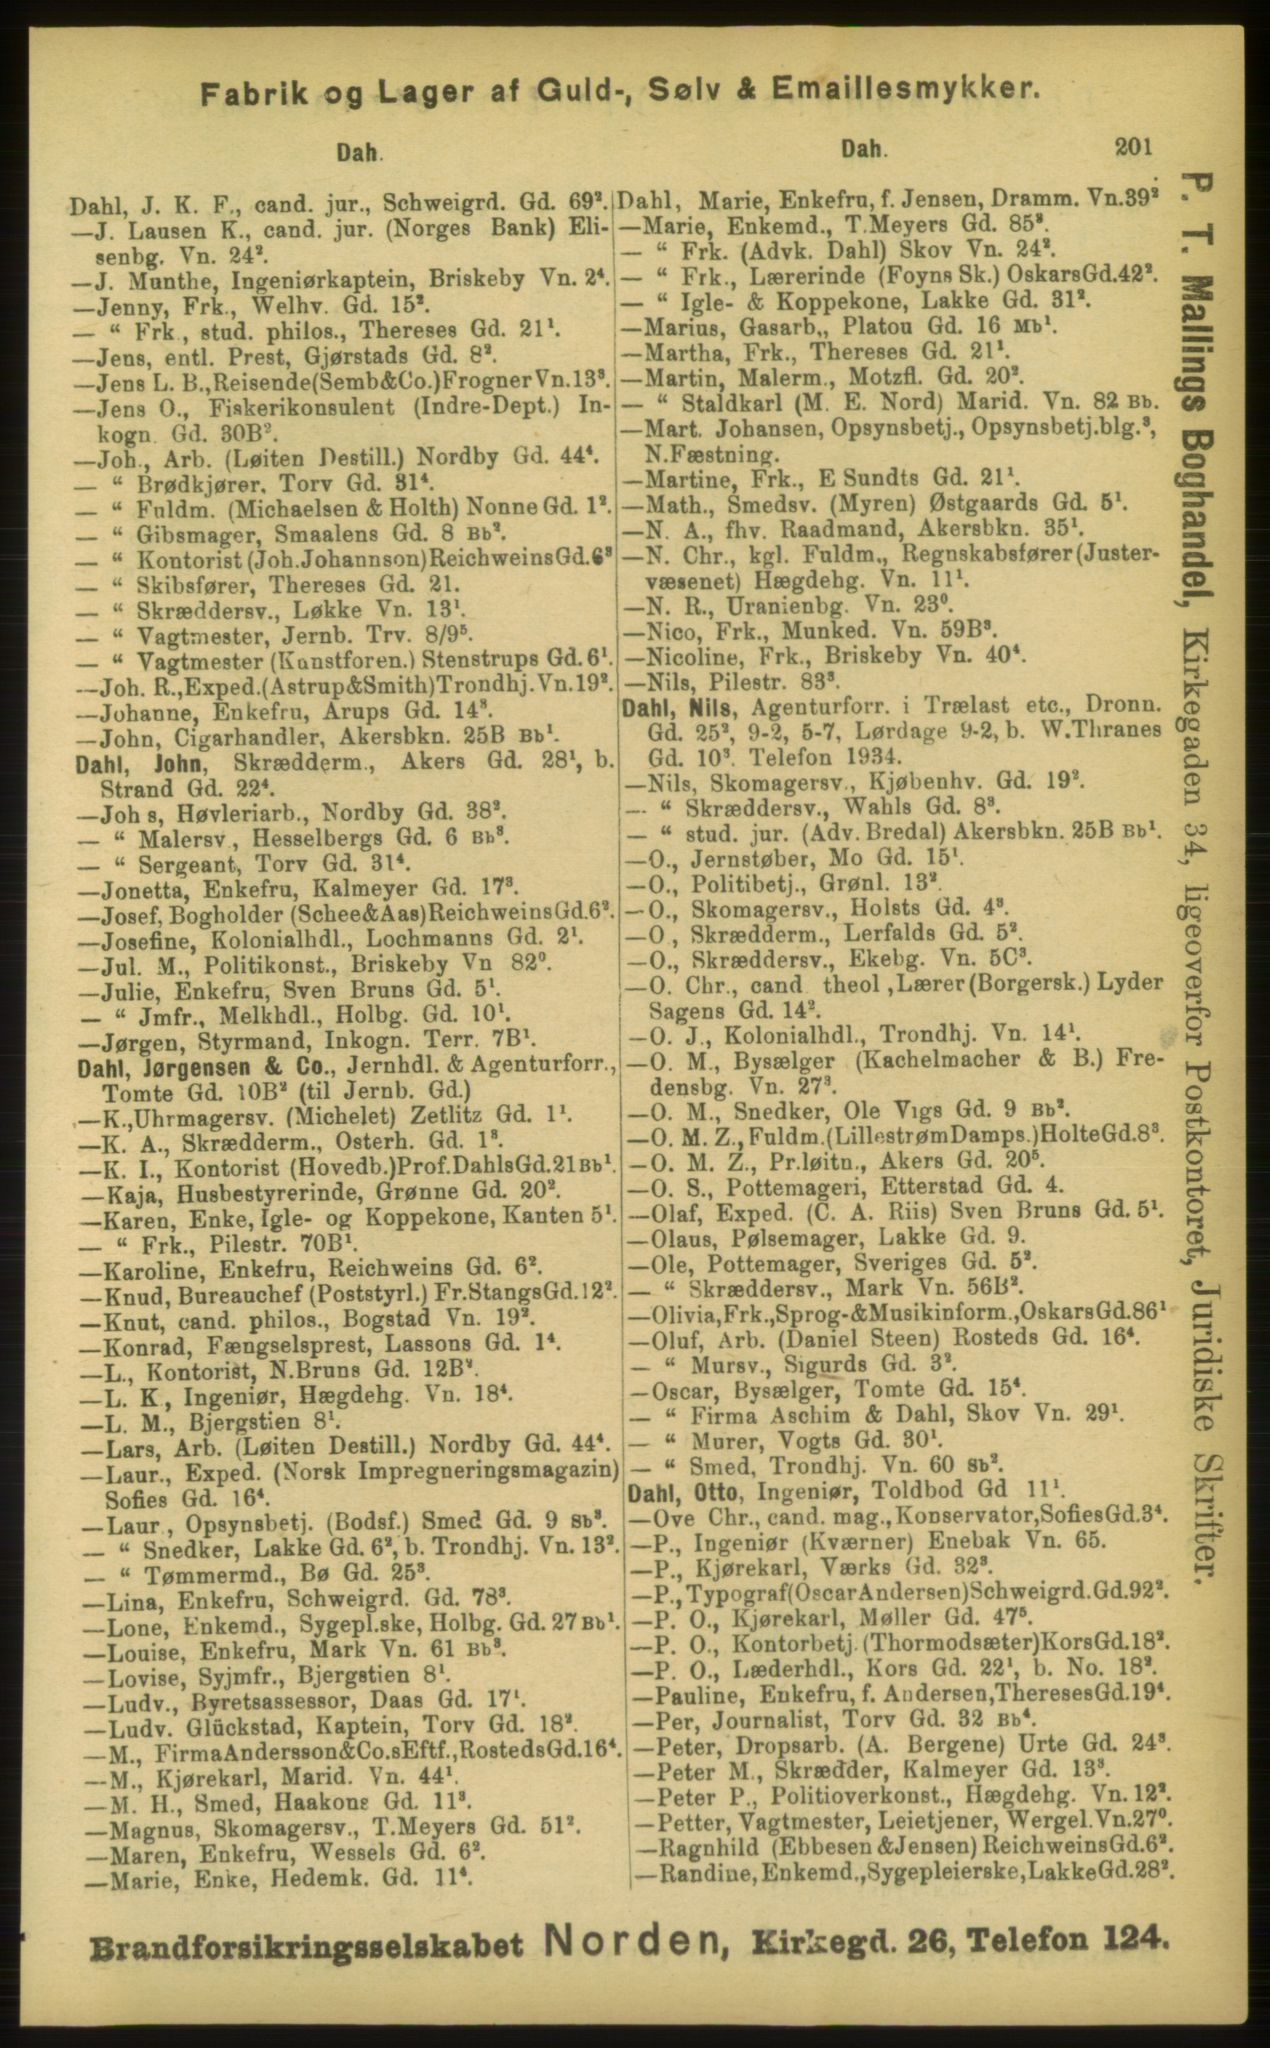 Fabrik og Lager af Guld-, Sølv & Emaillesmykker.
Dah.
Dahl, J. K. F., cand. jur., Schweigrd. Gd. 69².
—J. Lausen K., cand. jur. (Norges Bank) Eli-
senbg. Vn. 24².
—J. Munthe, Ingeniørkaptein, Briskeby Vn. 2⁴.
—Jenny, Frk., Welhv. Gd. 15².
— “ Frk., stud. philos., Thereses Gd. 21¹.
—Jens, entl. Prest, Gjørstads Gd. 8².
—Jens L. B., Reisende (Semb&Co.) Frogner Vn. 13³.
—Jens O., Fiskerikonsulent (Indre-Dept.) In-
kogn. Gd. 30B².
—Joh., Arb. (Løiten Destill.) Nordby Gd. 44⁴.
— “ Brødkjører, Torv Gd. 31⁴.
— “ Fuldm. (Michaelsen & Holth) Nonne Gd. 1².
— “ Gibsmager, Smaalens Gd. 8 Bb².
— “ Kontorist (Joh. Johannson) Reichweins Gd. 6³
— “ Skibsfører, Thereses Gd. 21.
— “ Skræddersv., Løkke Vn. 13¹.
— “ Vagtmester, Jernb. Trv. 8/9⁵.
— “ Vagtmester (Kunstforen.) Stenstrups Gd. 6¹.
—Joh. R., Exped. (Astrup&Smith) Trondhj. Vn. 19².
—Johanne, Enkefru, Arups Gd. 14³.
—John, Cigarhandler, Akersbkn. 25B Bb¹.
Dahl, John, Skrædderm., Akers Gd. 28¹, b.
Strand Gd. 22⁴.
—Joh s, Høvleriarb., Nordby Gd. 38².
— “ Malersv, Hesselbergs Gd. 6 Bb³.
— “ Sergeant, Torv Gd. 31⁴.
—Jonetta, Enkefru, Kalmeyer Gd. 17³.
—Josef, Bogholder (Schee&Aas) Reichweins Gd. 6².
—Josefine, Kolonialhdl., Lochmanns Gd. 2¹.
—Jul. M., Politikonst., Briskeby Vn 82⁰.
—Julie, Enkefru, Sven Bruns Gd. 5¹.
— “ Jmfr., Melkhdl., Holbg. Gd. 10¹.
—Jørgen, Styrmand, Inkogn. Terr. 7B¹.
Dahl, Jørgensen & Co., Jernhdl. & Agenturforr.,
Tomte Gd. 10B² (til Jernb. Gd.)
—K., Uhrmagersv. (Michelet) Zetlitz Gd. 1¹.
—K. A., Skrædderm., Osterh. Gd. 1³.
—K. I., Kontorist (Hovedb.) Prof. Dahls Gd. 21 Bb¹.
—Kaja, Husbestyrerinde, Grønne Gd. 20².
—Karen, Enke, Igle- og Koppekone, Kanten 5¹.
— “ Frk., Pilestr. 70B¹.
—Karoline, Enkefru, Reichweins Gd. 6².
—Knud, Bureauchef (Poststyrl.) Fr. Stangs Gd. 12².
—Knut, cand. philos., Bogstad Vn. 19².
—Konrad, Fængselsprest, Lassons Gd. 1⁴.
—L., Kontorist, N. Bruns Gd. 12B².
—L. K, Ingeniør, Hægdehg. Vn. 18⁴.
—L. M., Bjergstien 8¹.
—Lars, Arb. (Løiten Destill.) Nordby Gd. 44⁴.
—Laur., Exped. (Norsk Impregneringsmagazin)
Sofies Gd. 16⁴.
—Laur, Opsynsbetj. (Bodsf.) Smed Gd. 9 Sb³.
— “ Snedker, Lakke Gd. 6², b. Trondhj. Vn. 13².
— “ Tømmermd., Bø Gd. 25³.
—Lina, Enkefru, Schweigrd. Gd. 78³.
—Lone, Enkemd., Sygepl.ske, Holbg. Gd. 27 Bb¹.
—Louise, Enkefru, Mark Vn. 61 Bb³.
—Lovise, Syjmfr., Bjergstien 8¹.
—Ludv., Byretsassessor, Daas Gd. 17¹.
—Ludv. Glückstad, Kaptein, Torv Gd. 18².
—M., Firma Andersson&Co.s Eftf., Rosteds Gd. 16⁴.
—M., Kjørekarl, Marid. Vn. 44¹.
—M. H., Smed, Haakons Gd. 11³.
—Magnus, Skomagersv., T. Meyers Gd. 51².
—Maren, Enkefru, Wessels Gd. 6².
—Marie, Enke, Hedemk. Gd. 11⁴.
Dah. 201
Dahl, Marie, Enkefru, f. Jensen, Dramm. Vn. 39²
—Marie, Enkemd., T. Meyers Gd. 85³.
— “ Frk. (Advk. Dahl) Skov Vn. 24².
— “ Frk., Lærerinde (Foyns Sk.) Oskars Gd. 42².
— “ Igle- & Koppekone, Lakke Gd. 31².
—Marius, Gasarb., Platou Gd. 16 Mb¹.
—Martha, Frk., Thereses Gd. 21¹.
—Martin, Malerm., Motzfl. Gd. 20².
— “ Staldkarl (M. E. Nord) Marid. Vn. 82 Bb.
—Mart. Johansen, Opsynsbetj., Opsynsbetj.blg.³,
N. Fæstning.
—Martine, Frk., E Sundts Gd. 21¹.
—Math., Smedsv. (Myren) Østgaards Gd. 5¹.
—N. A., fhv. Raadmand, Akersbkn. 35¹.
—N. Chr., kgl. Fuldm., Regnskabsfører (Juster-
væsenet) Hægdehg. Vn. 11¹.
—N. R., Uranienbg. Vn. 23⁰.
—Nico, Frk., Munked. Vn. 59B³.
—Nicoline, Frk., Briskeby Vn. 40⁴.
—Nils, Pilestr. 83³.
Dahl, Nils, Agenturforr. i Trælast etc., Dronn.
Gd. 25², 9-2, 5-7, Lørdage 9-2, b. W. Thranes
Gd. 10³. Telefon 1934.
—Nils, Skomagersv., Kjøbenhv. Gd. 19².
— “ Skræddersv., Wahls Gd. 8³.
— “ stud. jur. (Adv. Bredal) Akersbkn. 25B Bb¹.
—O., Jernstøber, Mo Gd. 15¹.
—O., Politibetj., Grønl. 13².
—O., Skomagersv., Holsts Gd. 4³.
—O, Skrædderm., Lerfalds Gd. 5².
—O., Skræddersv., Ekebg. Vn. 5C³.
—O. Chr., cand theol, Lærer (Borgersk.) Lyder
Sagens Gd. 14².
—O. J., Kolonialhdl., Trondhj. Vn. 14¹.
—O. M., Bysælger (Kachelmacher & B.) Fre-
densbg. Vn. 27³.
—O. M., Snedker, Ole Vigs Gd. 9 Bb².
—O. M. Z., Fuldm. (Lillestrøm Damps.) Holte Gd. 8³.
—O. M. Z., Pr.løitn., Akers Gd. 20⁵.
—O. S., Pottemageri, Etterstad Gd. 4.
—Olaf, Exped. (C. A. Riis) Sven Bruns Gd. 5¹.
—Olaus, Pølsemager, Lakke Gd. 9.
—Ole, Pottemager, Sveriges Gd. 5².
— “ Skræddersv., Mark Vn. 56B².
—Olivia, Frk., Sprog- & Musikinform., Oskars Gd. 86¹
—Oluf, Arb. (Daniel Steen) Rosteds Gd. 16⁴.
— “ Mursv., Sigurds Gd. 3².
—Oscar, Bysælger, Tomte Gd. 15⁴.
— “ Firma Aschim & Dahl, Skov Vn. 29¹.
— “ Murer, Vogts Gd. 30¹.
— “ Smed, Trondhj. Vn. 60 Sb².
Dahl, Otto, Ingeniør, Toldbod Gd 11¹.
—Ove Chr., cand. mag., Konservator, Sofies Gd. 3⁴.
—P., Ingeniør (Kværner) Enebak Vn. 65.
—P., Kjørekarl, Værks Gd. 32³.
—P., Typograf (Oscar Andersen) Schweigrd. Gd. 92².
—P. O., Kjørekarl, Møller Gd. 47⁵.
—P. O., Kontorbetj. (Thormodsæter) Kors Gd. 18².
—P. O., Læderhdl., Kors Gd. 22¹, b. No. 18².
—Pauline, Enkefru, f. Andersen, Thereses Gd. 19⁴.
—Per, Journalist, Torv Gd. 32 Bb⁴.
—Peter, Dropsarb. (A. Bergene) Urte Gd. 24³.
—Peter M., Skrædder, Kalmeyer Gd. 13³.
—Peter P., Politioverkonst., Hægdehg. Vn. 12².
—Petter, Vagtmester, Leietjener, Wergel. Vn. 27⁰.
—Ragnhild (Ebbesen & Jensen) Reichweins Gd. 6².
—Randine, Enkemd., Sygepleierske, Lakke Gd. 28².
P. T. Mallings Boghandel, Kirkegaden 34, ligeoverfor Postkontoret, Juridiske Skrifter.
Brandforsikringsselskabet Norden, Kirkegd. 26, Telefon 124.